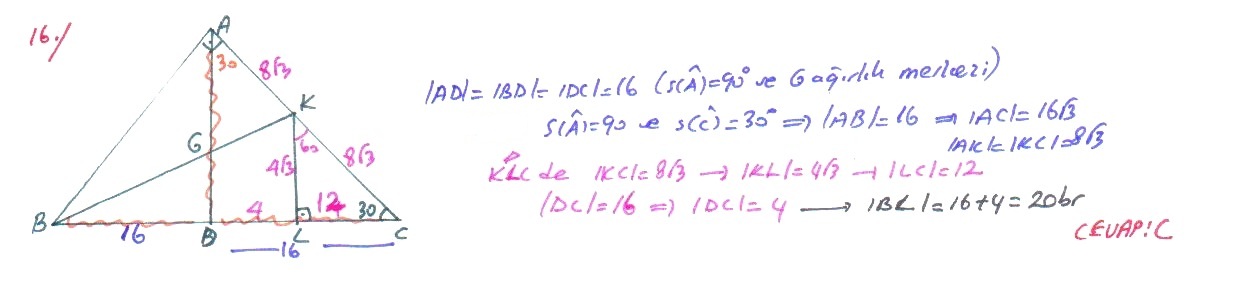 16./
A
30
8√3
K
G
60
4√3
8√3
4
12
30
B
16
D
L
C
16
|AD|=|BD|=|DC|=16 (s(Â)=90° ve G ağırlık merkezi)
s(Â)=90 ve s(ĉ)=30° ⇒ |AB|=16 ⇒ |AC|=16√3
|AK|=|KC|=8√3
KLC de |KC|=8√3 → |KL|=4√3 → |LC|=12
|DC|=16 ⇒ |DC|=4 → |BL|=16+4=20br
CEVAP:C